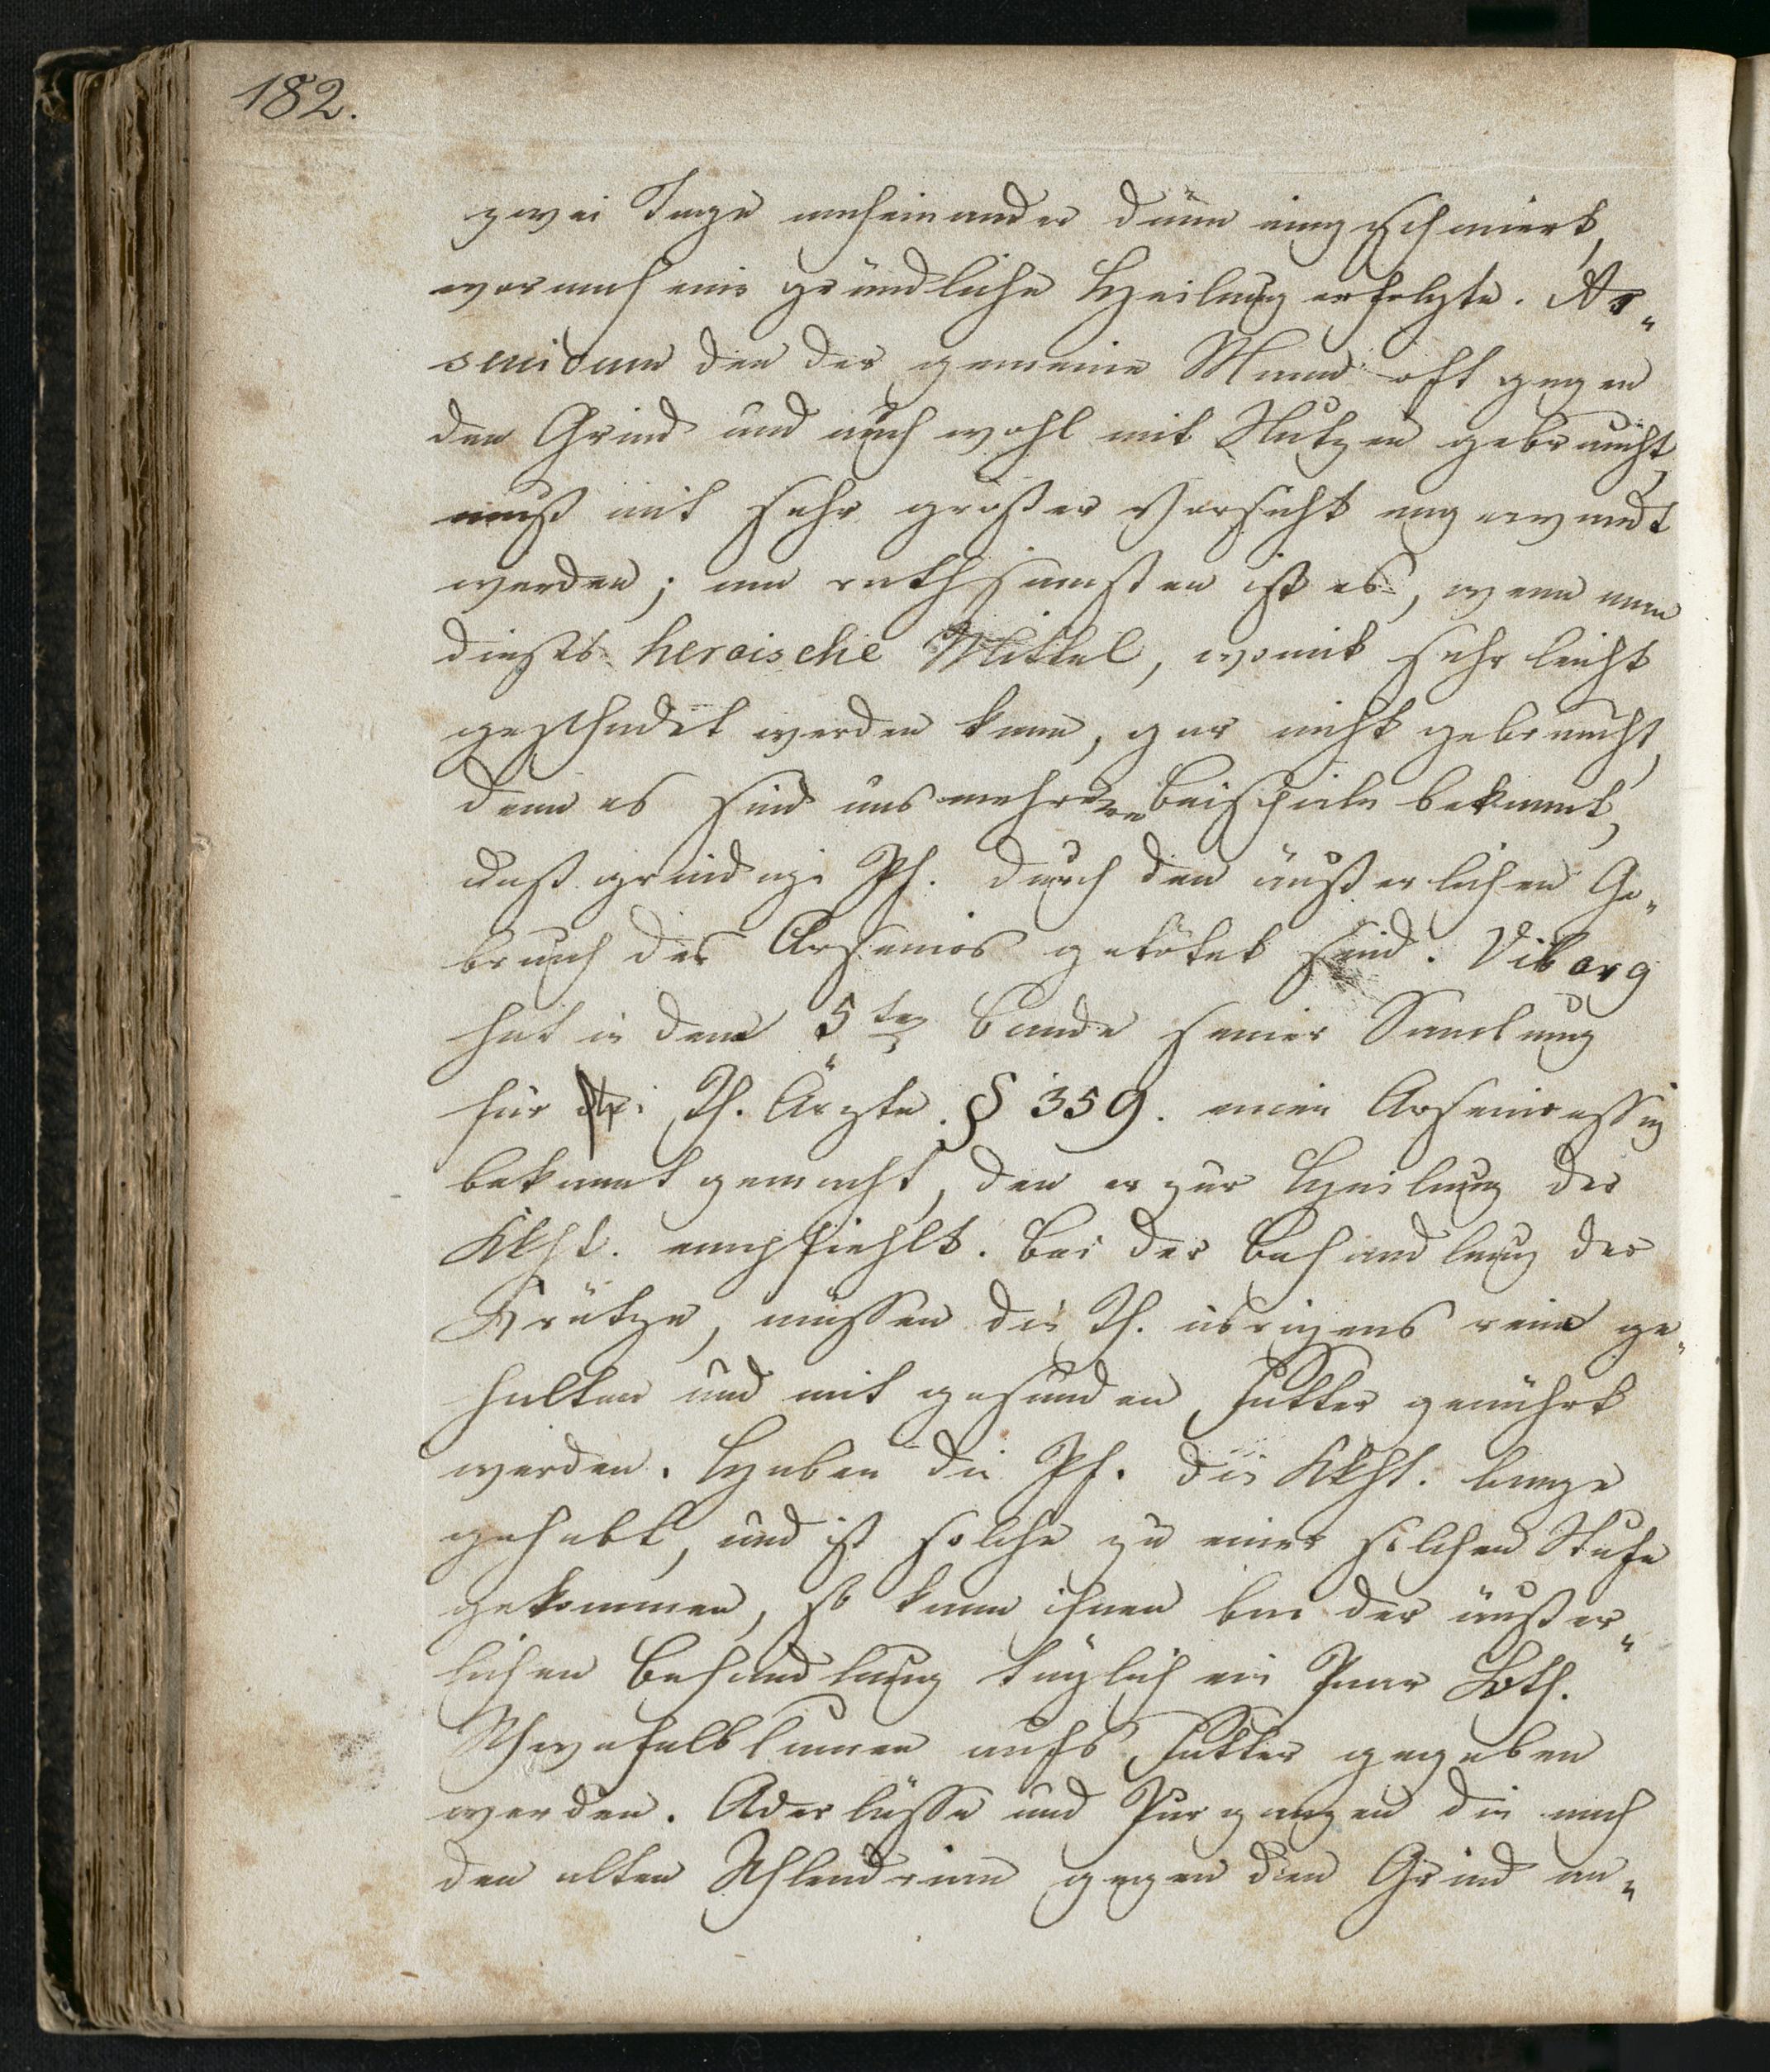 182.
zwei Tage nacheinander dünn eingeschmiert,
wornach eine gründliche Heilung erfolgte. Ar„
senicum den der gemeine Mann oft gegen
den Grind und auch wohl mit Nutzen gebraucht,
muß mit sehr großer Vorsicht angewandt
werden; am rathsamsten ist es, wenn man
dieses heroische Mittel, womit sehr leicht
geschadet werden kann, gar nicht gebraucht,
denn es sind uns mehrere Beispiele bekannt,
daß grindige Pf. durch den äußerlichen Ge„
brauch des Arsenics getötet sind. Viborg
hat in dem 5ten Bande seiner Samlung
für Th. Ärzte. § 359. einen Arsenicessig
bekannt gemacht, den er zur Heilung der
Kkht. empfiehlt. Bei der Behandlung der
Krätze, müssen die Th. übrigens rein ge„
halten und mit gesunden Futter genährt
werden. Haben die Pf. die Kkht. lange
gehabt, und ist solche zu einer solchen Stufe
gekommen, so kann ihnen bei der äußer„
lichen Behandlung täglich ein Paar Loth.
Schwefelblumen aufs Futter gegeben
werden. Aderlässe und Purganzen die nach
den alten Schlendrian gegen dien Grind an„